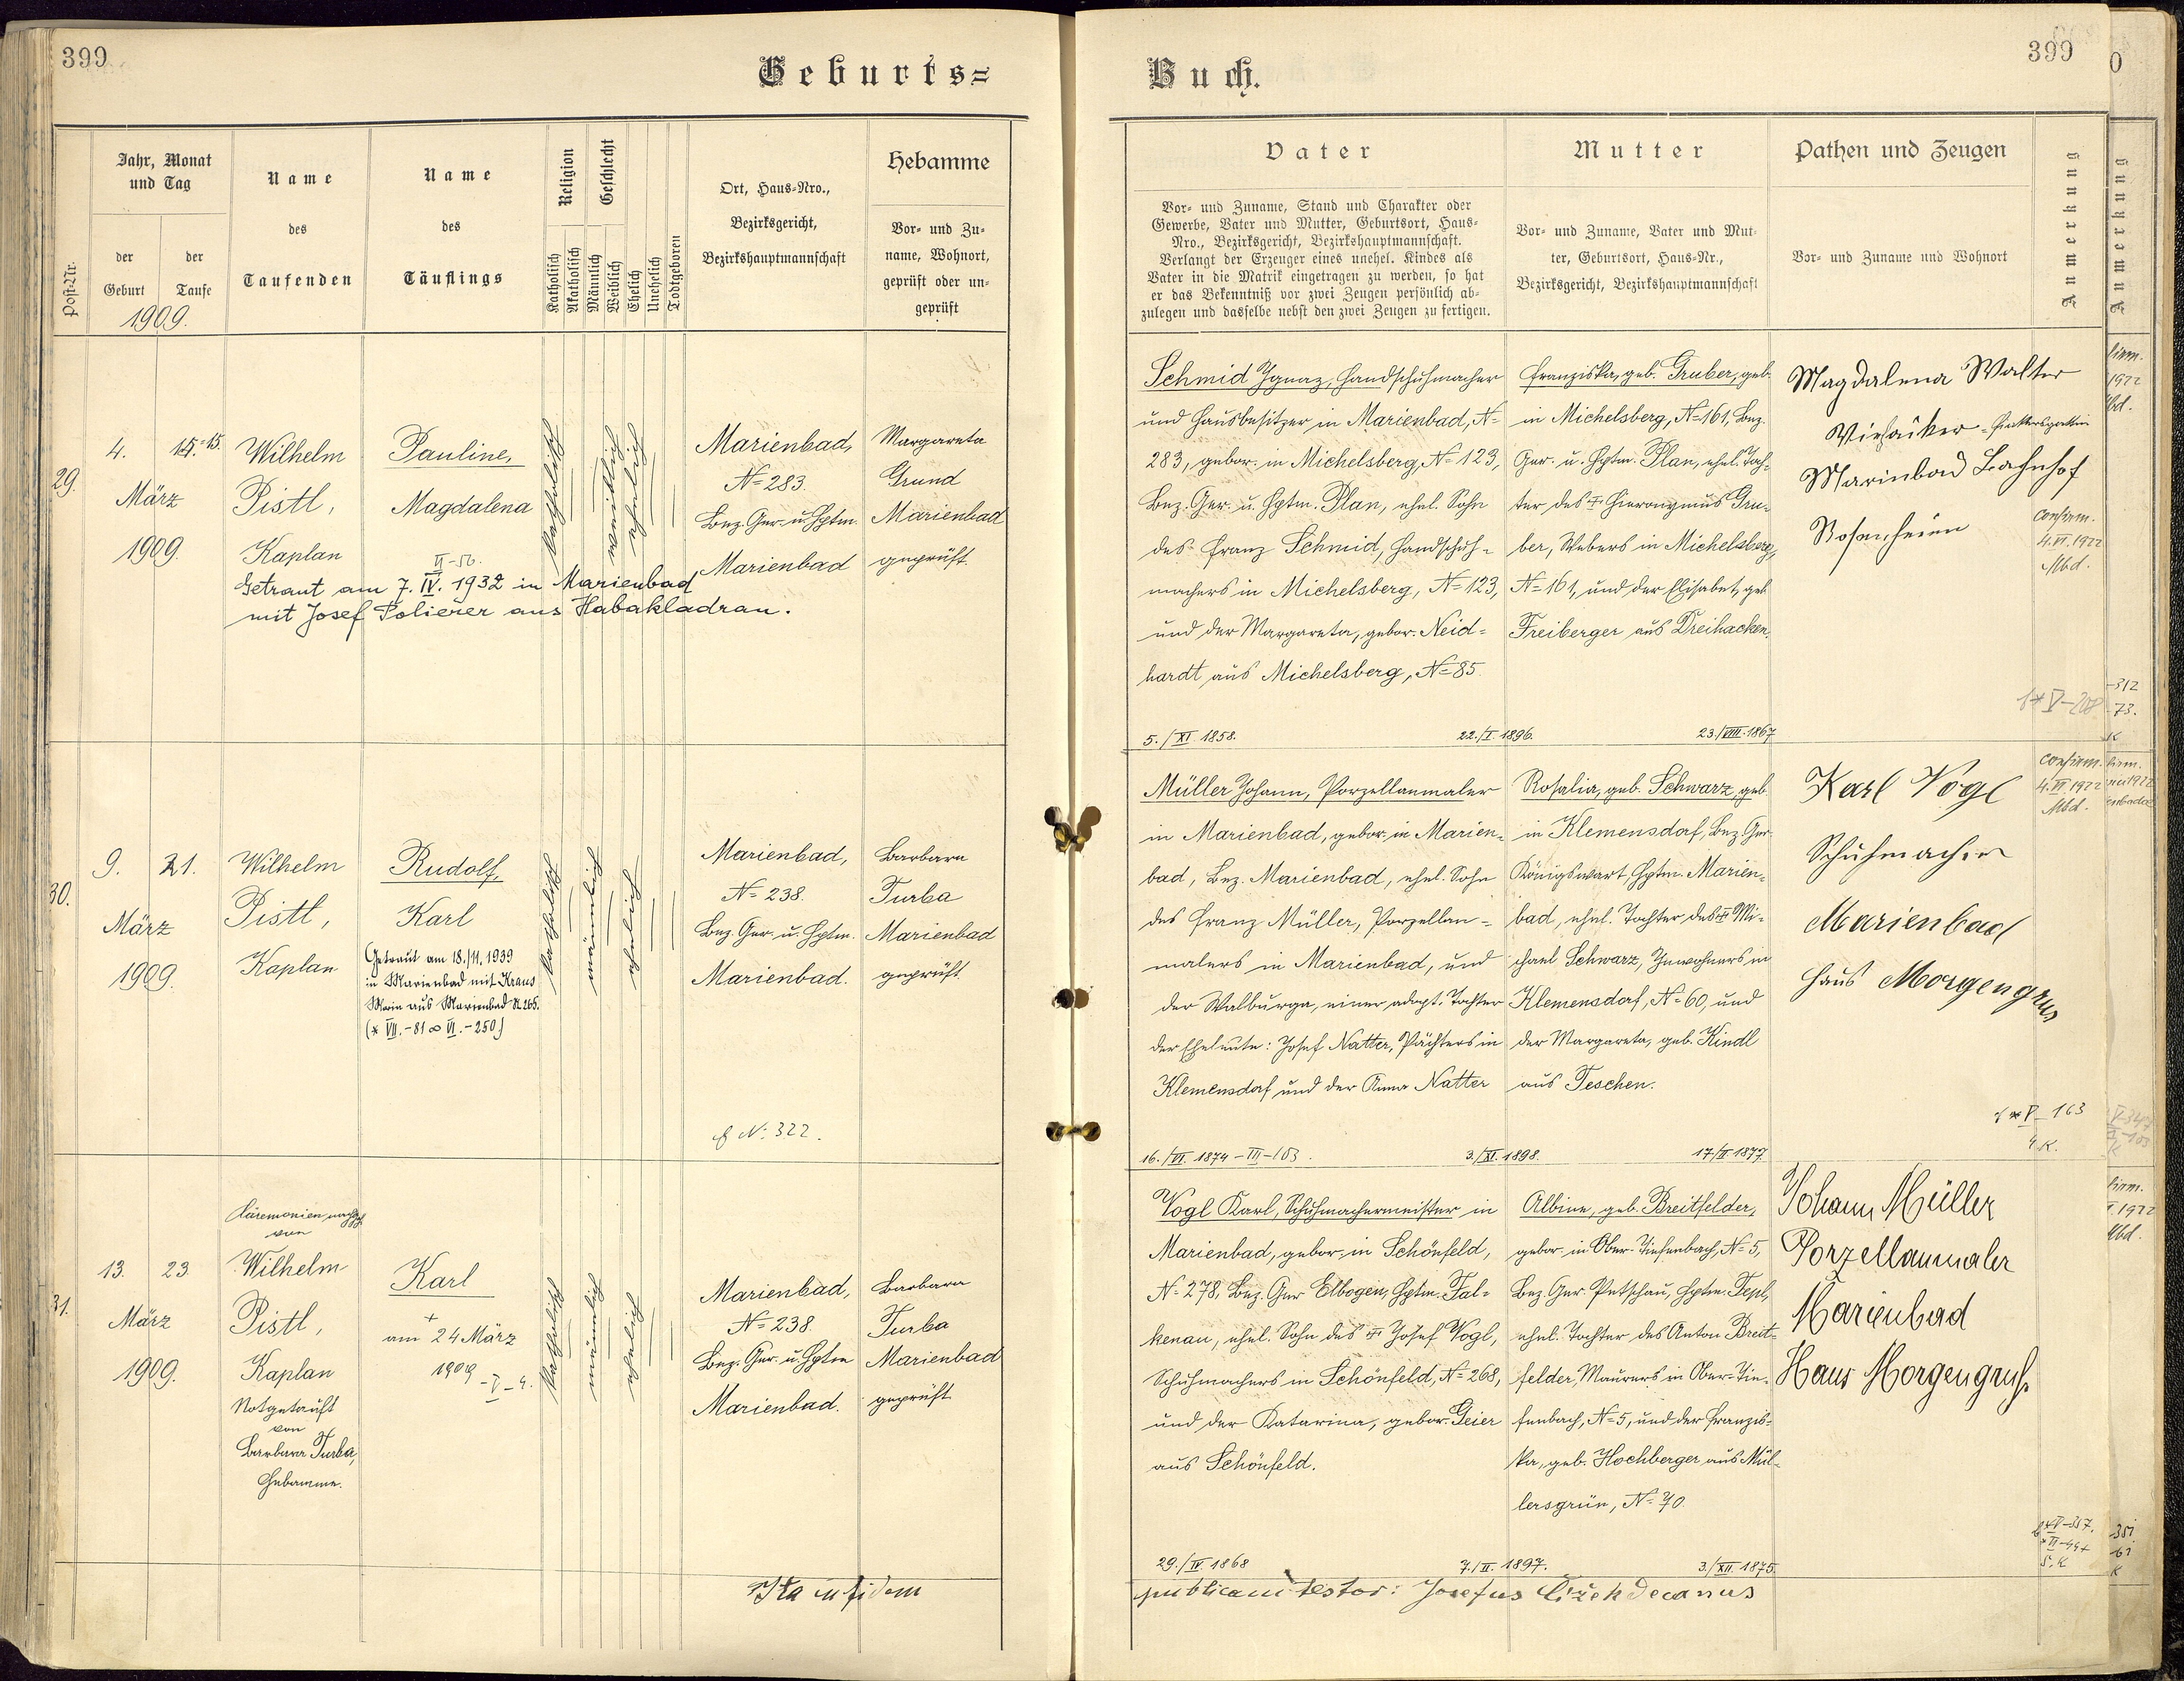 399
Geburts=
Jahr, Monat
und Tag
der
Geburt
der
Taufe
1909.
Post-Nr.
Name
des
Taufenden
Name
des
Täuflings
Religion
Geschlecht
Katholisch
Akatholisch
Männlich
Weiblich
Ehelich
Unehelich
Todtgeboren
Ort, Haus-Nro.,
Bezirksgericht,
Bezirkshauptmannschaft
Hebamme
Vor- und Zu-
name, Wohnort,
geprüft oder un-
geprüft
29.
4.
15.
März
1909.
Wilhelm
Pistl,
Kaplan
Pauline,
Magdalena
II-56.
katholisch
weiblich
ehelich
Marienbad,
N=283.
Bez. Ger. u. Hptm.
Marienbad
Margareta
Grund
Marienbad
geprüft.
Getraut am 7. IV. 1932 in Marienbad
mit Josef Polierer aus Habakladrau.
30.
9.
21.
März
1909.
Wilhelm
Pistl,
Kaplan
Rudolf,
Karl
Getraut am 18./11. 1939
in Marienbad mit Kraus
Marie aus Marienbad N. 265.
(* VII.-81 ∞ VI.-250)
katholisch
männlich
ehelich
Marienbad,
N=238.
Bez. Ger. u. Hptm.
Marienbad.
Barbara
Turba
Marienbad
geprüft.
N: 322.
31.
13.
23.
März
1909.
von
Wilhelm
Pistl,
Kaplan
Notgetauft
von
Barbara Turba,
Hebamme.
Karl
+
am 24 März
1909
-V-4.
katholisch
männlich
ehelich
Marienbad,
N=238.
Bez. Ger. u. Hptm
Marienbad.
Barbara
Turba
Marienbad
geprüft.
Ita in fidem
Buch.
399
Vater
Vor- und Zuname, Stand und Charakter oder
Gewerbe, Vater und Mutter, Geburtsort, Haus-
Nro., Bezirksgericht, Bezirkshauptmannschaft.
Verlangt der Erzeuger eines unehel. Kindes als
Vater in die Matrik eingetragen zu werden, so hat
er das Bekenntniß vor zwei Zeugen persönlich ab-
zulegen und dasselbe nebst den zwei Zeugen zu fertigen.
Mutter
Vor- und Zuname, Vater und Mut-
ter, Geburtsort, Haus-Nr.,
Bezirksgericht, Bezirkshauptmannschaft
Pathen und Zeugen
Vor- und Zuname und Wohnort
Anmerkung
Schmid Ignaz, Handschuhmacher
und Hausbesitzer in Marienbad, N=
283, gebor. in Michelsberg, N=123,
Bez. Ger. u. Hptm. Plan, ehel. Sohn
des Franz Schmid, Handschuh-
machers in Michelsberg, N=123,
und der Margareta, gebor. Neid=
hardt aus Michelsberg, N=85.
5./XI. 1858.
22./I. 1896.
Franziska, geb. Gruber, geb.
in Michelsberg, N=161, Bez.
Ger. u. Hptm. Plan, ehel. Toch-
ter des + Hieronymus Gru-
ber, Webers in Michelsberg,
N=161, und der Elisabet, geb
Freiberger aus Dreihacken.
23./VIII. 1867
Magdalena Walter
Marienbad Bahnhof
Rosenheim
confirm.
4. VI. 1922
Mbd.
Müller Johann, Porzellanmaler
in Marienbad, gebor. in Marien-
bad, Bez. Marienbad, ehel. Sohn
des Franz Müller, Porzellan-
malers in Marienbad, und
der Walburga, einer adopt. Tochter
der Eheleute: Josef Natter, Pächters in
Klemensdorf und der Anna Natter
16./VI. 1874 - III-103.
3./XI. 1898.
Rosalia, geb. Schwarz, geb.
in Klemensdorf, Bez. Ger.
Königswart, Hptm. Marien-
bad, ehel. Tochter des + Mi-
chael Schwarz, Inwohners in
Klemensdorf, N=60, und
der Margareta, geb. Kindl
aus Teschen.
17/II. 1877
Karl Vogl
Schuhmacher
Marienbad
Haus Morgengrus
confirm.
4. VI. 1922
Mbd.
V-163
4 K.
Vogl Karl, Schuhmachermeister in
Marienbad, gebor. in Schönfeld,
N=278, Bez. Ger Elbogen, Hptm. Fal-
kenau, ehel. Sohn des + Josef Vogl,
Schuhmachers in Schönfeld, N=268,
und der Katarina, gebor. Geier
aus Schönfeld.
29./IV. 1868
7./II. 1897.
Albine, geb. Breitfelder,
gebor. in Ober-Tiefenbach, N=5,
Bez. Ger. Petschau, Hptm. Tepl,
ehel. Tochter des Anton Breit-
felder, Maurers in Ober-Tie-
fenbach, N=5, und der Franzis-
ka, geb. Hochberger aus Mül-
lersgrün, N=70.
3./XII. 1875.
Johann Müller
Porzellanmaler
Marienbad
Haus Morgengruß.
publicam testor: Josefus Čížek decanus